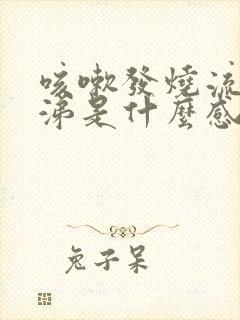 咳嗽發燒流
涕是什麼感
兔子呆